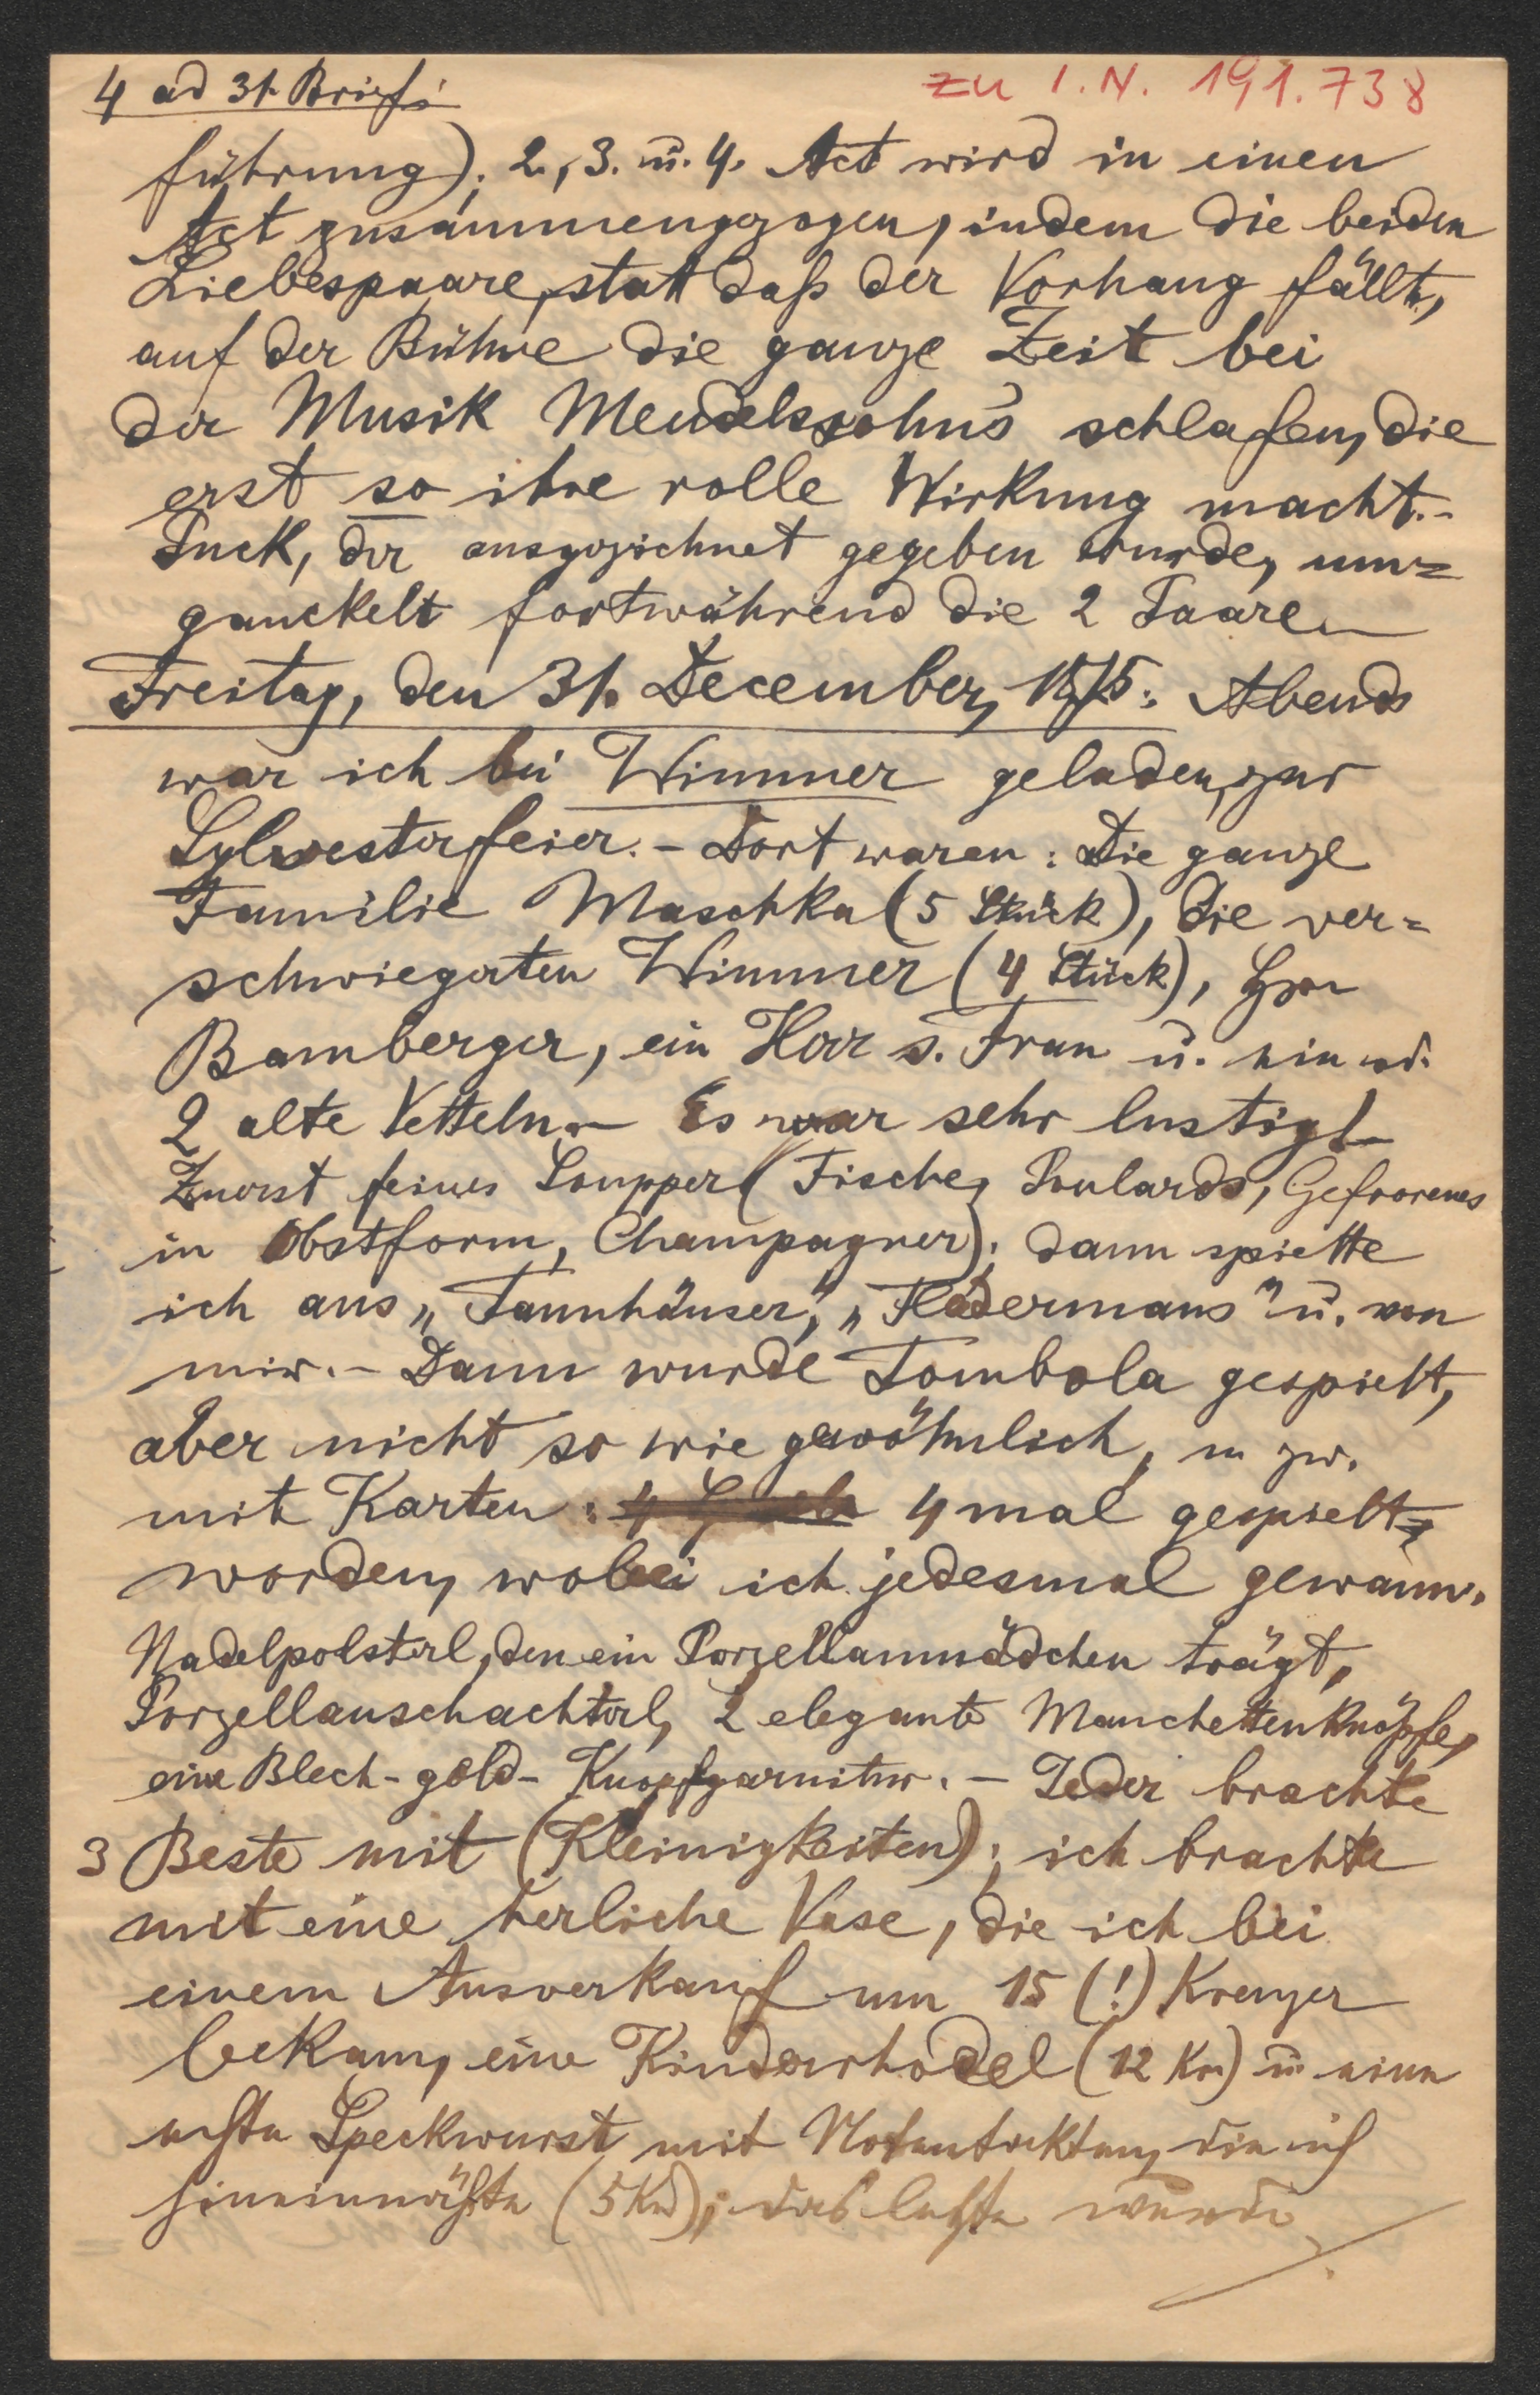 4 ad 31. Brief:
zu I.N. 191.738
führung); 2., 3. u. 4. Act wird in einen
Act zusammengezogen, indem die beiden
Liebespaare, statt daß der Vorhang fällt,
auf der Bühne die ganze Zeit bei
der Musik Mendelssohns schlafen, die
erst so ihre volle Wirkung macht.-
Puck, der ausgezeichnet gegeben wurde, um=
gauckelt fortwährend die 2 Paare.
Freitag, den 31. December, 1875: Abends
war ich bei Wimmer geladen, zur
Sylvesterfeier. - Dort waren: Die ganze
Familie Maschka (5 Stück), die ver=
schwiegerten Wimmer (4 Stück), Hrn
Bamberger, ein Herr s. Frau u. ein
2 alte Vetteln. - Es war sehr lustig! -
Zuerst feines Soupper (Fische, Poulards, Gefrorenes
in Obstform, Champagner); dann spielte
ich aus „Tannhäuser“, „Fledermaus“ u. von
mir. - Dann wurde Tombola gespielt,
aber nicht so wie gewöhnlich, u zw.
mit Karten: 4 mal gespielt
worden, wobei ich jedesmal gewann.
Nadelpolsterl, den ein Porzellanmädchen trägt,
Porzellanschachterl, 2 elegante Manchettenknöpfe,
eine Blech-gold-Knopfgarnitur. - Jeder brachte
3 Beste mit (Kleinigkeiten); ich brachte
mit eine herliche Vase, die ich bei
einem Ausverkauf um 15 (!) Kreuzer
bekam, eine Kinderrhodel (12 Kr.) u. eine
echte Speckwurst mit die ich
hineinnähte (5 Kr.); das letzte wurde